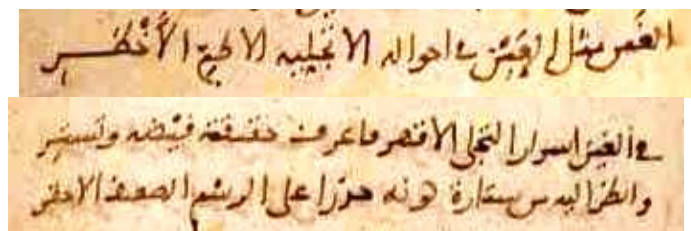 الغين مثل العين في احواله الا تجليه الاطم الأخطر
في الغين اسرار التجلى الاقهر فاعرف حقيقة فيضه وتستر
وانظر اليه من ستارة كونه حذرا على الرسم الضعيف الاحقر